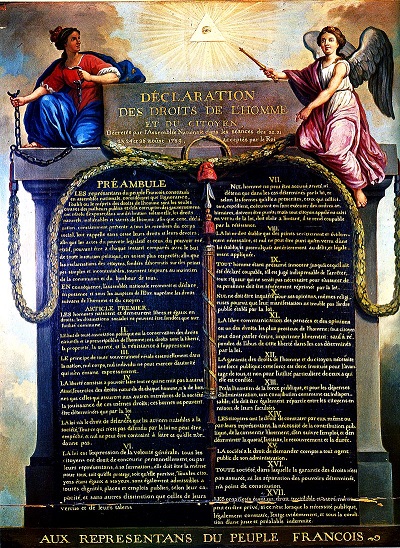 DÉCLARATION
DES DROITS DE L'HOMME
ET DU CITOYEN
Décrétés par l'Assemblée Nationale dans les séances des 20 21
23 24 et 26 aoust 1789, acceptés par le Roi
PRÉAMBULE
LES représentans du peuple François constitués
en assemblée nationale, considérant que l'ignorance,
l'oubli ou le mépris des droits de l'homme sont les seules
causes des malheurs publics et de la corruption des gouvernemens
ont résolu d'exposer dans une déclaration solemnelle, les droits
naturels, inaliénables et sacrés de l'homme; afin que cette décla
ration, constamment présente à tous les membres du corps
social, leur rappelle sans cesse leurs droits et leurs devoirs;
afin que les actes du pouvoir législatif et ceux du pouvoir exé
cutif, pouvant être à chaque instant comparés avec le but
de toute institution politique, en soient plus respectés; afin que
les réclamations des citoyens, fondées désormais sur des princi
pes simples et incontestables, tournent toujours au maintien
de la constitution et du bonheur de tous.
EN conséquence, l'assemblée nationale reconnoît et déclare
en présence et sous les auspices de l'Être suprême les droits
suivans de l'homme et du citoyen.
ARTICLE PREMIER.
LES hommes naissent et demeurent libres et égaux en
droits; les distinctions sociales ne peuvent être fondées que sur
l'utilité commune.
II.
LE but de toute association politique est la conservation des droits
naturels et imprescriptibles de l'homme; ces droits sont la liberté,
la propriété, la sureté, et la résistance à l'oppression.
III.
LE principe de toute souveraineté réside essentiellement dans
la nation, nul corps, nul individu ne peut exercer d'autorité
qui n'en émane expressément.
IV.
LA liberté consiste à pouvoir faire tout ce qui ne nuit pas à autrui
Ainsi, l'exercice des droits naturels de chaque homme, n'a de bor-
nes que celles qui assurent aux autres membres de la société
la jouissance de ces mêmes droits; ces bornes ne peuvent
être déterminées que par la loi
V.
LA loi n'a le droit de défendre que les actions nuisibles à la
société. Tout ce qui n'est pas défendu par la loi ne peut être
empêché, et nul ne peut être contraint à faire ce qu'elle n'or-
donne pas.
VI.
LA loi est l'expression de la volonté générale; tous les
citoyens ont droit de concourir personnellement, ou par
leurs représentans, à sa formation; elle doit être la même
pour tous, soit qu'elle protége, soit qu'elle punisse. Tous les cito-
yens étant égaux à ses yeux, sont également admissibles à
toutes dignités, places et emplois publics, selon leur ca-
pacité, et sans autres distinction que celles de leurs
vertus et de leurs talens.
VII.
NUL homme ne peut être accusé, arrêté, ni
détenu que dans les cas déterminés par la loi, et
selon les formes qu'elle a prescrites, ceux qui sollici-
tent, expédient, exécutent ou font exécuter des ordres ar-
bitraires, doivent être punis; mais tout citoyen appelé ou saisi
en vertu de la loi, doit obéir à l'instant, il se rend coupable
par la résistance.
VIII.
LA loi ne doit établir que des peines strictement et évidem-
ment nécessaires, et nul ne peut être puni qu'en vertu d'une
loi établie et promulguée antérieurement au délit, et légale-
ment appliquée.
IX.
TOUT homme étant présumé innocent jusqu'à ce qu'il ait
été déclaré coupable, s'il est jugé indispensable de l'arrêter,
toute rigueur qui ne seroit pas nécessaire pour s'assurer de
sa personne doit être sévèrement réprimée par la loi.
X.
NUL ne doit être inquiété pour ses opinions, mêmes religi-
euses pourvu que leur manifestation ne trouble pas l'ordre
public établi par la loi.
XI.
LA libre communication des pensées et des opinions
est un des droits les plus précieux de l'homme: tout citoyen
peut donc parler, écrire, imprimer librement: sauf à ré-
pondre de l'abus de cette liberté dans les cas déterminés
par la loi.
XII.
LA garantie des droits de l'homme et du citoyen nécessite
une force publique: cette force est donc instituée pour l'avan-
tage de tous, et non pour l'utilité particulière de ceux à qui
elle est confiée.
XIII.
POUR l'entretien de la force publique, et pour les dépenses
d'administration, une contribution commune est indispen-
sable; elle doit être également répartie entre les citoyens en
raison de leurs facultés
XIV.
LES citoyens ont le droit de constater par eux même ou
par leurs représentans, la nécessité de la contribution pub-
lique, de la consentir librement, d'en suivre l'emploi, et d'en
déterminer la quotité, l'assiette, le recouvrement et la durée.
XV.
LA société a le droit de demander compte à tout agent
public de son administration.
XVI.
TOUTE société, dans laquelle la garantie des droits n'est
pas assurée, ni la séparation des pouvoirs déterminée,
n'a point de constitution.
XVII.
LES propriétés étant un droit inviolable et sacré, nul ne
peut en être privé, si ce n'est lorsque la nécessité publique,
légalement constatée, l'exige évidemment, et sous la condi-
tion d'une juste et préalable indemnité.
AUX REPRESENTANS DU PEUPLE FRANCOIS